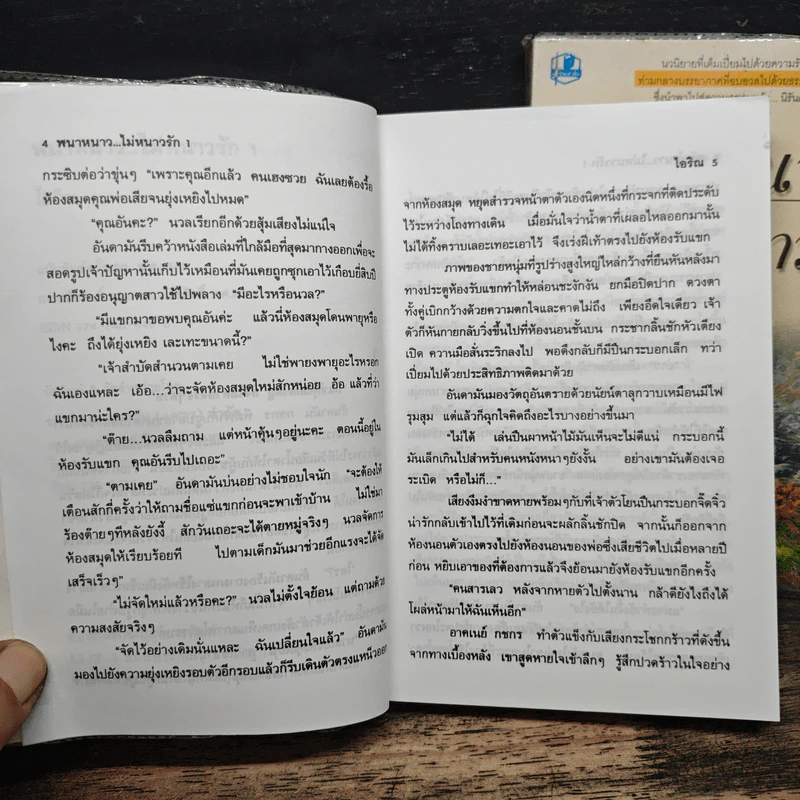 4 พนาหนาว...ไม่หนาวรัก 1
กระซิบต่อว่าขุ่นๆ "เพราะคุณอีกแล้ว คนเฮงซวย ฉันเลยต้องรื้อ
ห้องสมุดคุณพ่อเสียจนยุ่งเหยิงไปหมด"
"คุณอันคะ?" นวลเรียกอีกด้วยสุ้มเสียงไม่แน่ใจ
อันดามันรีบคว้าหนังสือเล่มที่ใกล้มือที่สุดมากางออกเพื่อจะ
สอดรูปเจ้าปัญหานั้นเก็บไว้เหมือนที่มันเคยถูกซุกเอาไว้เกือบยี่สิบปี
ปากก็ร้องอนุญาตสาวใช้ไปพลาง "มีอะไรหรือนวล?"
"มีแขกมาขอพบคุณอันค่ะ แล้วนี่ห้องสมุดโดนพายุหรือ
ไงคะ ถึงได้ยุ่งเหยิง เละเทะขนาดนี้?"
"เจ้าสำบัดสำนวนตามเคย ไม่ใช่พายงพายุอะไรหรอก
ฉันเองแหละ เอ้อ...ว่าจะจัดห้องสมุดใหม่สักหน่อย อ้อ แล้วที่ว่า
แขกมาน่ะใคร?"
"ต๊าย...นวลลืมถาม แต่หน้าคุ้นๆอยู่นะคะ ตอนนี้อยู่ใน
ห้องรับแขก คุณอันรีบไปเถอะ"
"ตามเคย" อันดามันบ่นอย่างไม่ชอบใจนัก "จะต้องให้
เตือนสักกี่ครั้งว่าให้ถามชื่อแซ่แขกก่อนจะพาเข้าบ้าน ไม่ใช่มา
ร้องต๊ายๆทีหลังยังงี้ สักวันเถอะจะได้ตายหมู่จริงๆ นวลจัดการ
ห้องสมุดให้เรียบร้อยที ไปตามเด็กมันมาช่วยอีกแรงจะได้จัด
เสร็จเร็วๆ"
"ไม่จัดใหม่แล้วหรือคะ?" นวลไม่ตั้งใจย้อน แต่ถามด้วย
ความสงสัยจริงๆ
"จัดไว้อย่างเดิมนั่นแหละ ฉันเปลี่ยนใจแล้ว" อันดามัน
มองไปยังความยุ่งเหยิงรอบตัวอีกรอบแล้วก็รีบเดินตัวตรงแหน็วออก
ไอริณ 5
จากห้องสมุด หยุดสำรวจหน้าตาตัวเองนิดหนึ่งที่กระจกที่ติดประดับ
ไว้ระหว่างโถงทางเดิน เมื่อมั่นใจว่าน้ำตาที่เผลอไหลออกมานั้น
ไม่ได้ทิ้งคราบเลอะเทอะเอาไว้ จึงเร่งฝีเท้าตรงไปยังห้องรับแขก
ภาพของชายหนุ่มที่รูปร่างสูงใหญ่ไหล่กว้างที่ยืนหันหลังมา
ทางประตูห้องรับแขกทำให้หล่อนชะงักงัน ยกมือปิดปาก ดวงตา
ทั้งคู่เบิกกว้างด้วยความตกใจและคาดไม่ถึง เพียงอึดใจเดียว เจ้า
ตัวก็หันกายกลับวิ่งขึ้นไปที่ห้องนอนชั้นบน กระชากลิ้นชักหัวเตียง
เปิด ควานมือสั่นระริกลงไป พอดึงกลับก็มีปืนกระบอกเล็ก ทว่า
เปี่ยมไปด้วยประสิทธิภาพติดมาด้วย
อันดามันมองวัตถุอันตรายด้วยนัยน์ตาลุกวาบเหมือนมีไฟ
รุมสุม แต่แล้วก็ฉุกใจคิดถึงอะไรบางอย่างขึ้นมา
"ไม่ได้ เล่นปืนผาหน้าไม้มันเห็นจะไม่ดีแน่ กระบอกนี้
มันเล็กเกินไปสำหรับคนหนังหนาๆยังงั้น อย่างเขามันต้องเจอ
ระเบิด หรือไม่ก็..."
เสียงงึมงำขาดหายพร้อมๆกับที่เจ้าตัวโยนปืนกระบอกจิ๊ดจิ๋ว
น่ารักกลับเข้าไปไว้ที่เดิมก่อนจะผลักลิ้นชักปิด จากนั้นก็ออกจาก
ห้องนอนตัวเองตรงไปยังห้องนอนของพ่อซึ่งเสียชีวิตไปเมื่อหลายปี
ก่อน หยิบเอาของที่ต้องการแล้วจึงย้อนมายังห้องรับแขกอีกครั้ง
"คนสารเลว หลังจากหายตัวไปตั้งนาน กล้าดียังไงถึงได้
โผล่หน้ามาให้ฉันเห็นอีก"
อาคเนย์ กชกร ทำตัวแข็งกับเสียงกระโชกกร้าวที่ดังขึ้น
จากทางเบื้องหลัง เขาสูดหายใจเข้าลึกๆ รู้สึกปวดร้าวในใจอย่าง
นวนิยายที่เต็มเปี่ยมไปด้วยความรั
ท่ามกลางบรรยากาศที่อบอวลไปด้วย